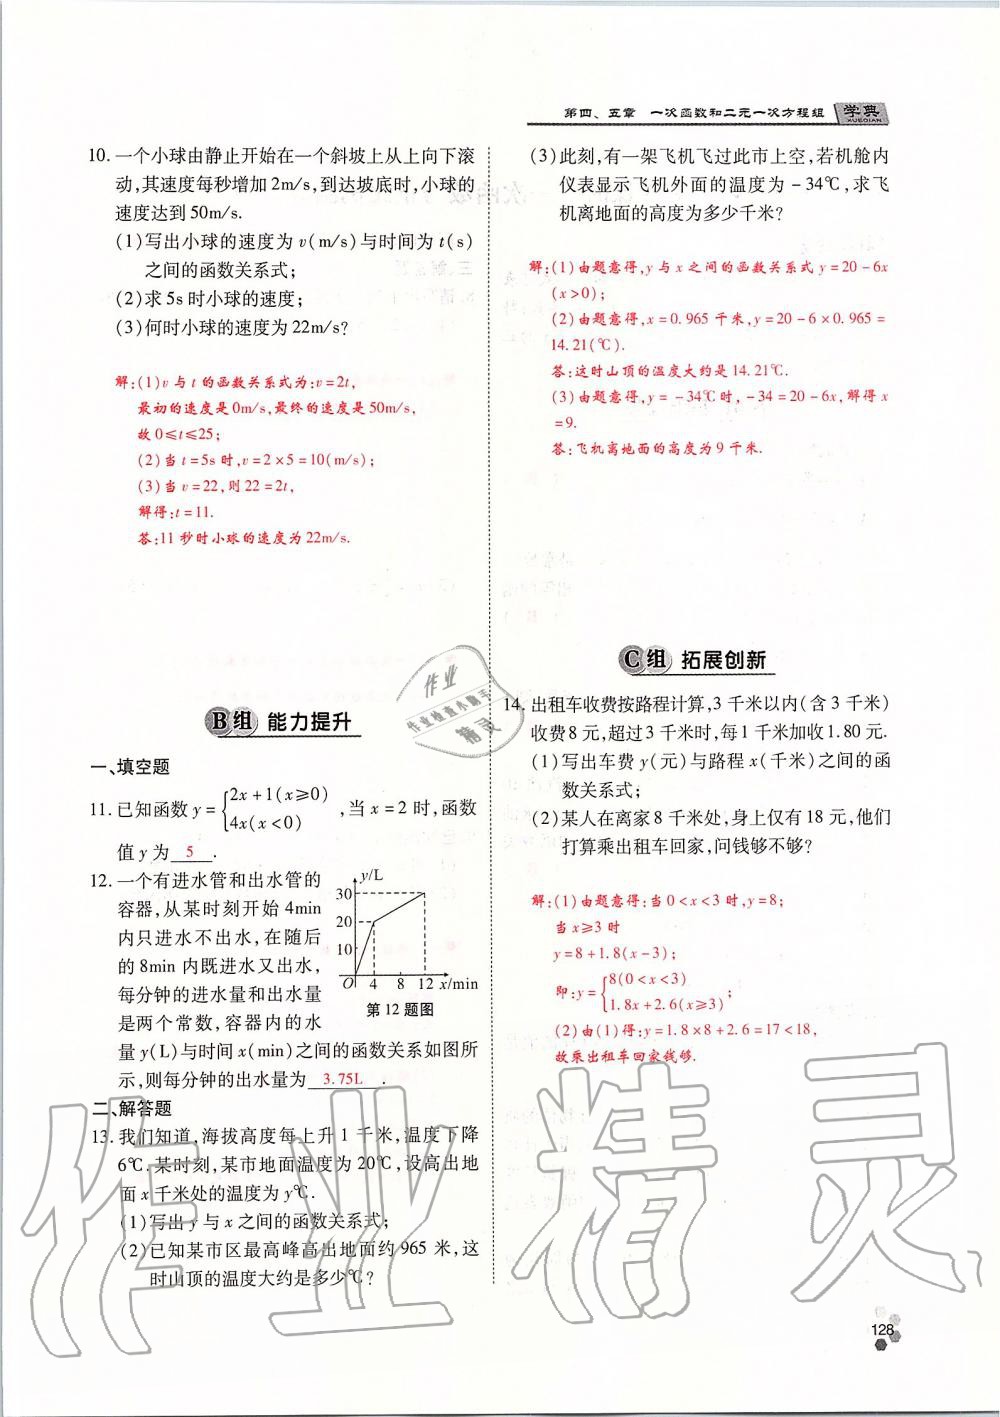 第四、五章 一次函数和二元一次方程组 学典
XUEDIAN
10. 一个小球由静止开始在一个斜坡上从上向下滚
动,其速度每秒增加2m/s,到达坡底时,小球的
速度达到50m/s.
(1)写出小球的速度为v(m/s)与时间为t(s)
之间的函数关系式;
(2)求5s时小球的速度;
(3)何时小球的速度为22m/s?
解:(1)v与t的函数关系式为:v=2t,
最初的速度是0m/s,最终的速度是50m/s,
故0≤t≤25;
(2)当t=5s时,v=2×5=10(m/s);
(3)当v=22,则22=2t,
解得:t=11.
答:11秒时小球的速度为22m/s.
B组 能力提升
一、填空题
11. 已知函数y={2x+1(x≥0)
4x(x<0) ,当x=2时,函数
值y为 5 .
12. 一个有进水管和出水管的
容器,从某时刻开始4min
内只进水不出水,在随后
的8min内既进水又出水,
每分钟的进水量和出水量
是两个常数,容器内的水
量y(L)与时间x(min)之间的函数关系如图所
示,则每分钟的出水量为 3.75L .
y/L
30
20
10
O 4 8 12 x/min
第12题图
二、解答题
13. 我们知道,海拔高度每上升1千米,温度下降
6℃.某时刻,某市地面温度为20℃,设高出地
面x千米处的温度为y℃.
(1)写出y与x之间的函数关系式;
(2)已知某市区最高峰高出地面约965米,这
时山顶的温度大约是多少℃?
(3)此刻,有一架飞机飞过此市上空,若机舱内
仪表显示飞机外面的温度为-34℃,求飞
机离地面的高度为多少千米?
解:(1)由题意得,y与x之间的函数关系式y=20-6x
(x>0);
(2)由题意得,x=0.965千米,y=20-6×0.965=
14.21(℃).
答:这时山顶的温度大约是14.21℃.
(3)由题意得,y=-34℃时,-34=20-6x,解得x
=9.
答:飞机离地面的高度为9千米.
C组 拓展创新
14. 出租车收费按路程计算,3千米以内(含3千米)
收费8元,超过3千米时,每1千米加收1.80元.
(1)写出车费y(元)与路程x(千米)之间的函
数关系式;
(2)某人在离家8千米处,身上仅有18元,他们
打算乘出租车回家,问钱够不够?
解:(1)由题意得:当0<x<3时,y=8;
当x≥3时
y=8+1.8(x-3);
即:y={8(0<x<3)
1.8x+2.6(x≥3) ;
(2)由(1)得:y=1.8×8+2.6=17<18,
故乘出租车回家钱够.
作业
作业检查小助手
精灵
作业精灵
128